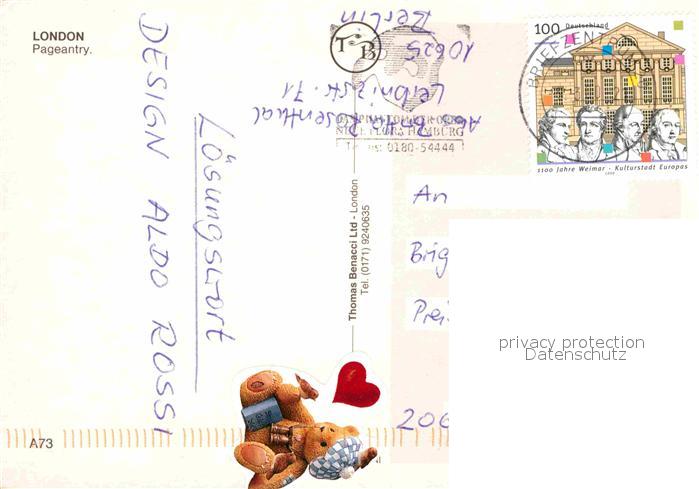 LONDON
Pageantry.
DESIGN ALDO ROSSI
Lösungswort
TB
Abs. Rosenthal
Leibnizstr. 71
10625
Berlin
100 Deutschland
BRIEFZENTRUM
1100 Jahre Weimar - Kulturstadt Europas
1999
HAMBURG
0180-54444
Thomas Benacci Ltd - London
Tel. (0171) 9240635
An
Brig
Preis
200
privacy protection
Datenschutz
A73